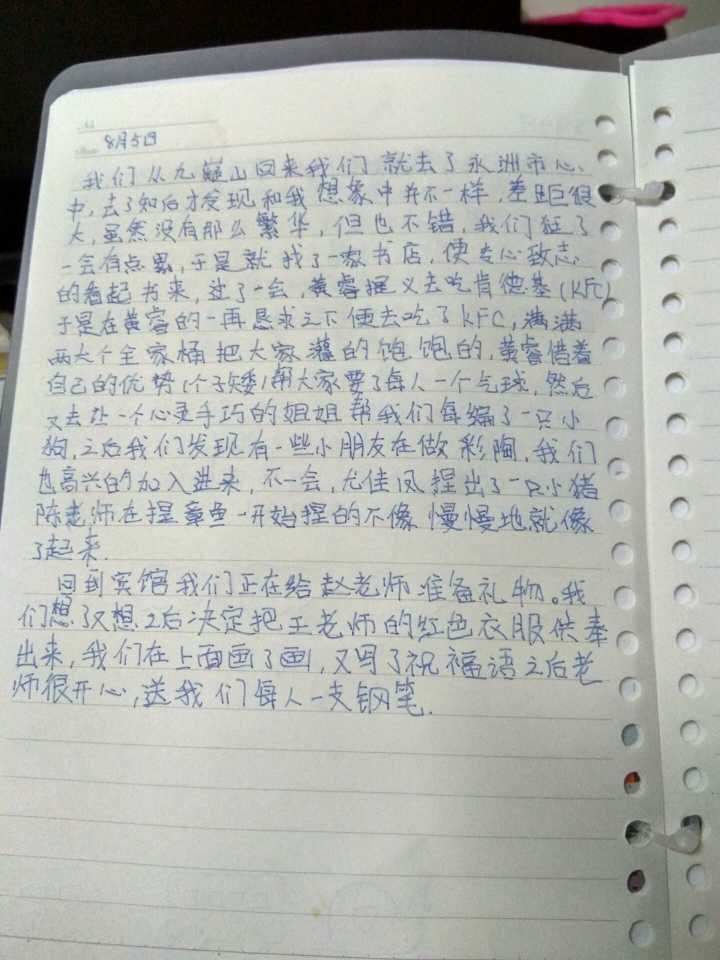 8月5日
我们从九嶷山回来我们就去了永洲市心、
中,去了知后才发现和我想象中并不一样,差距很
大,虽然没有那么繁华,但也不错,我们逛了
一会有点累,于是就找了一家书店,便专心致志
的看起书来,过了一会,黄睿提义去吃肯德基(KFC)
于是在黄睿的一再恳求之下便去吃了KFC,满满
两大个全家桶把大家灌的饱饱的,黄睿借着
自己的优势(个子矮)帮大家要了每人一个气球,然后
又去让一个心灵手巧的姐姐帮我们每编了一只小
狗,之后我们发现有一些小朋友在做彩陶,我们
也高兴的加入进来,不一会,尤佳凤捏出了一只小猪
陈老师在捏章鱼一开始捏的不像慢慢地就像
了起来.
回到宾馆我们正在给赵老师准备礼物。我
们想了又想之后决定把王老师的红色衣服供奉
出来,我们在上面画了画,又写了祝福语之后老
师很开心,送我们每人一支钢笔.